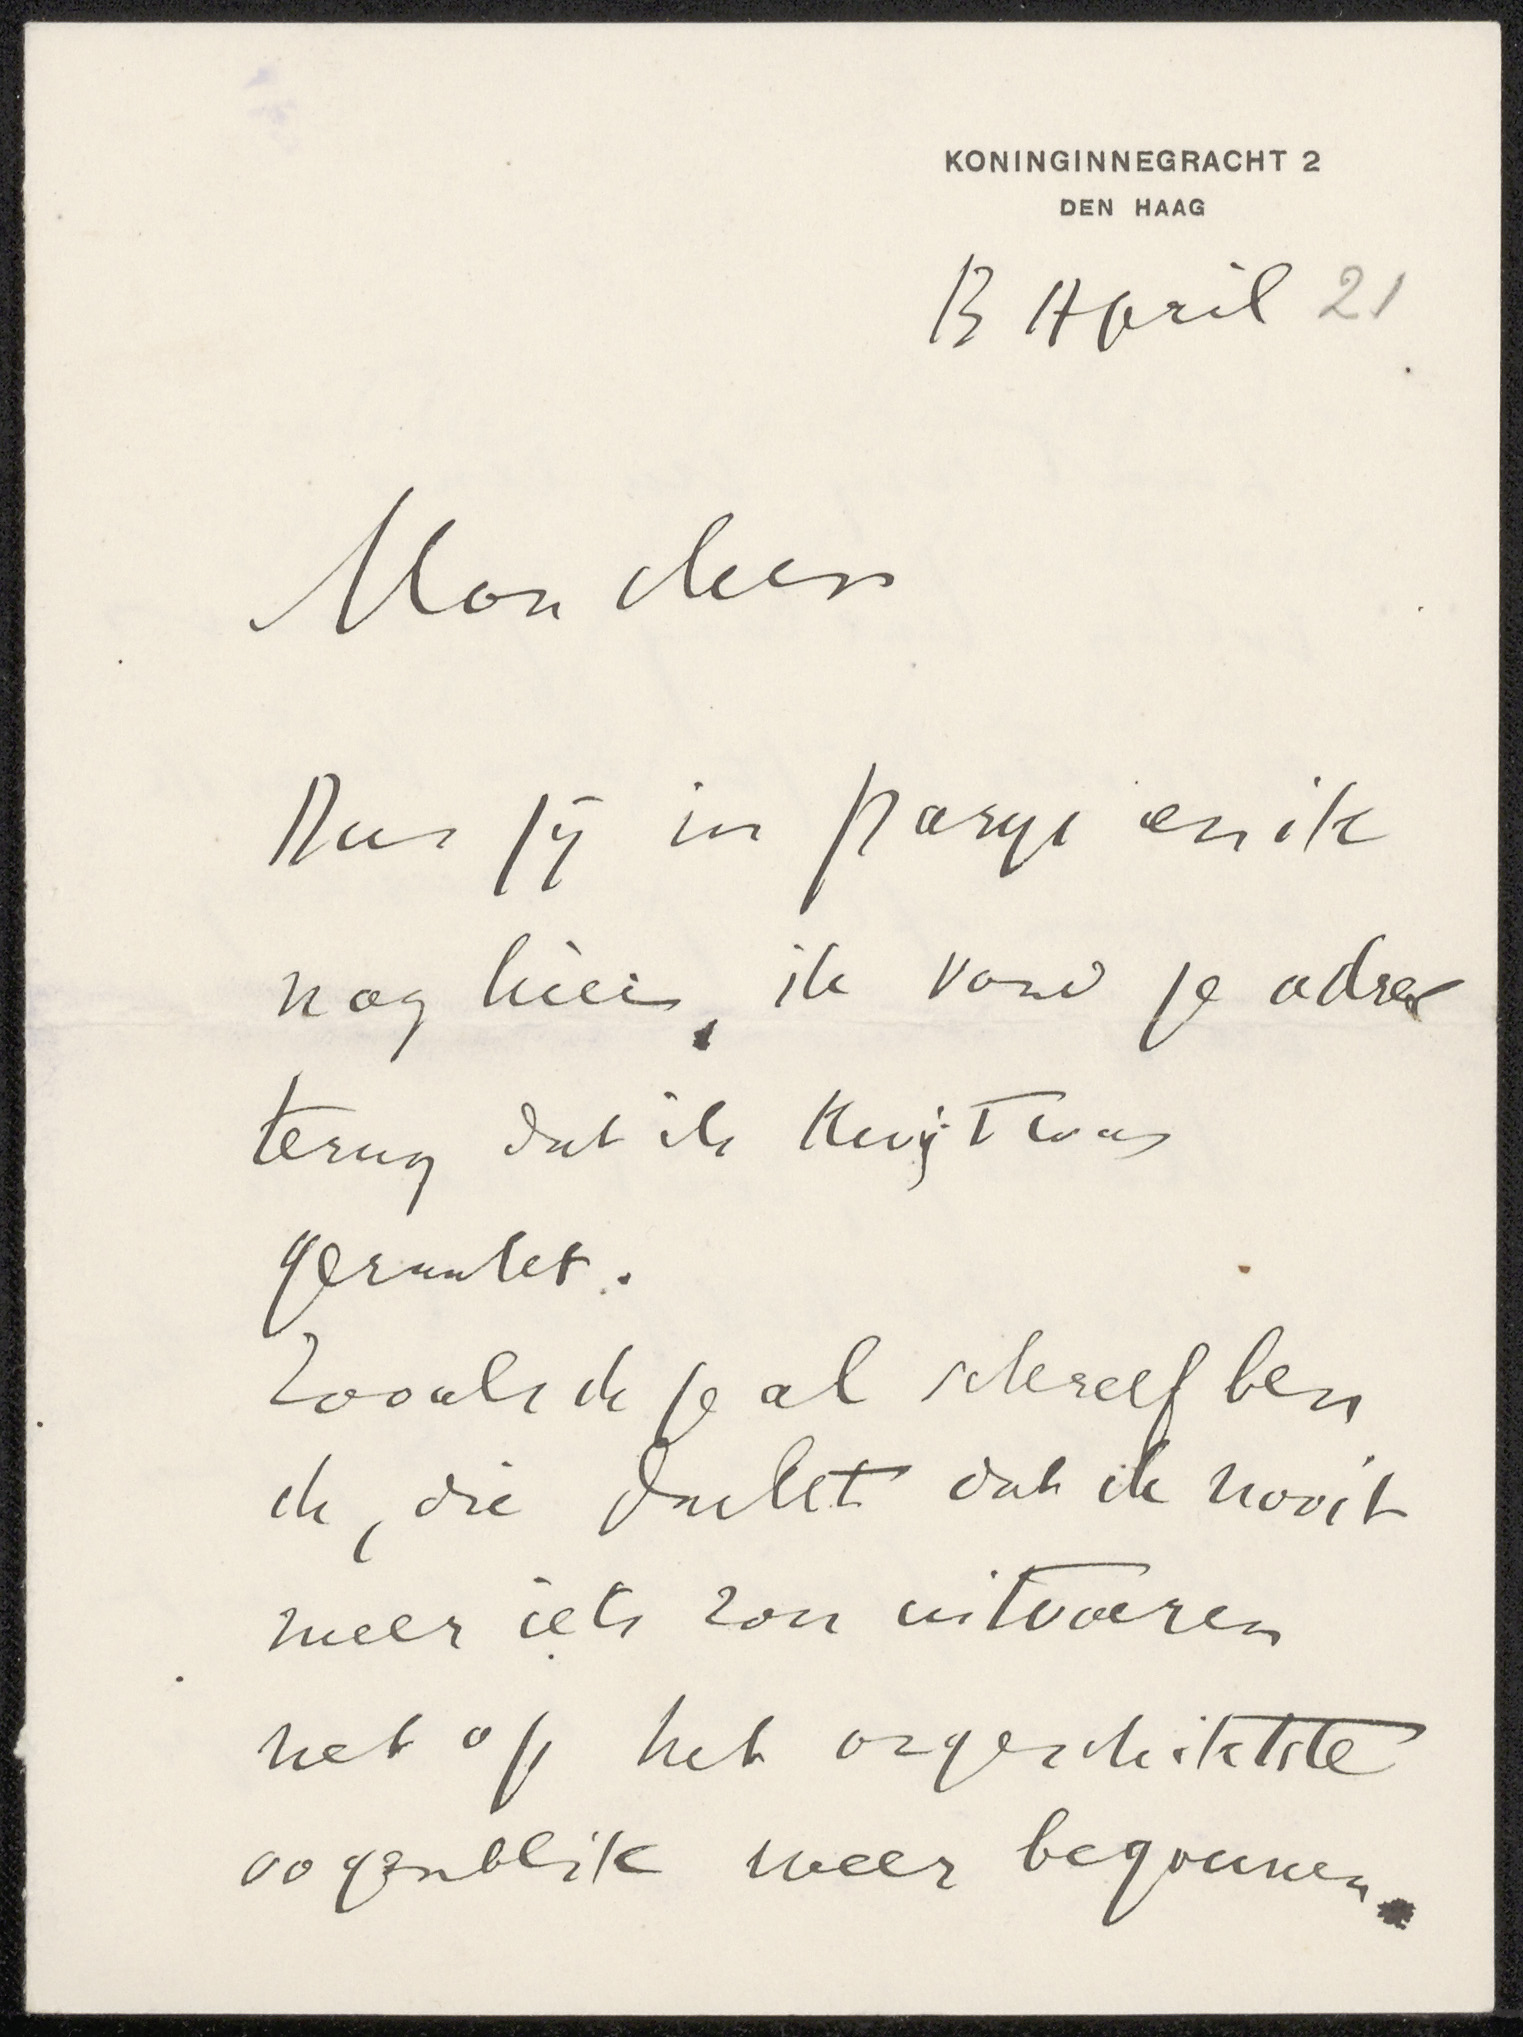 KONINGINNEGRACHT 2
DEN HAAG
13 April 21
Mon cher
Dus jij in Parijs en ik
nog hier, ik vond je adres
terug dat ik kwijt was
geraakt.
Zooals ik je al schreef ben
ik, die dacht dat ik nooit
meer iets zou uitvoeren
net op het ongeschiktste
oogenblik weer begonnen.